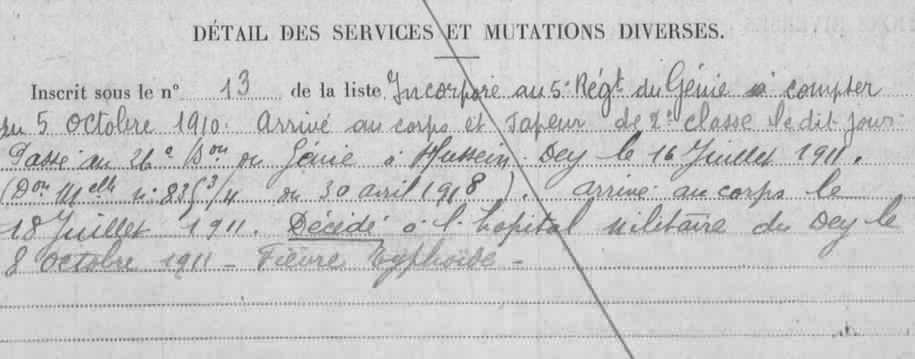 DÉTAIL DES SERVICES ET MUTATIONS DIVERSES.
Inscrit sous le n° 13 de la liste Incorporé au 5e Régt du Génie à compter
du 5 octobre 1910. Arrivé au corps et Sapeur de 2e classe le dit jour.
Passé au 26e Bon du Génie à Hussein-Dey le 16 Juillet 1911.
(Don Mlle n: 835 3/4 du 30 avril 1918). arrivé au corps le
18 Juillet 1911. Décédé à l'hopital militaire du Dey le
8 octobre 1911 - Fièvre Typhoïde -